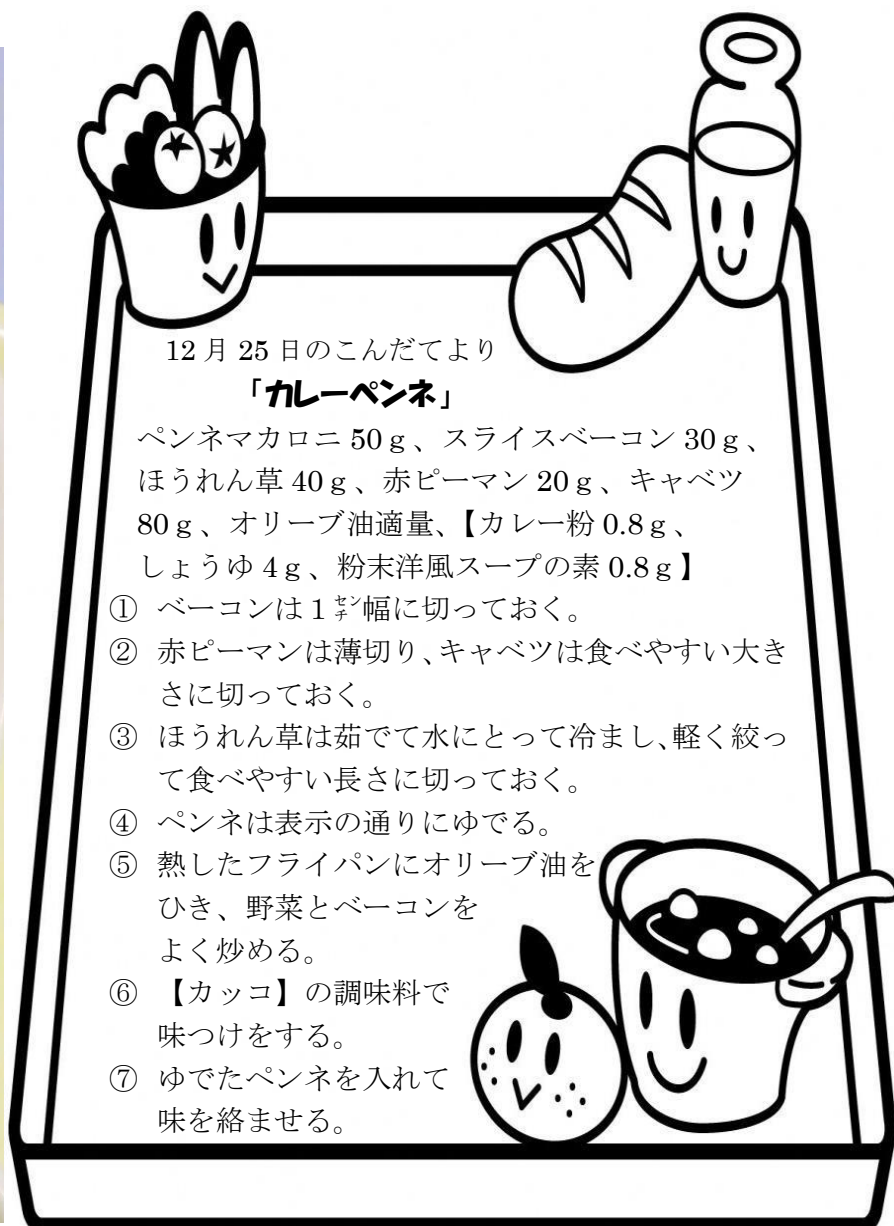 12月25日のこんだてより
「カレーペンネ」
ペンネマカロニ50g、スライスベーコン30g、
ほうれん草40g、赤ピーマン20g、キャベツ
80g、オリーブ油適量、【カレー粉0.8g、
しょうゆ4g、粉末洋風スープの素0.8g】
① ベーコンは1㌢幅に切っておく。
② 赤ピーマンは薄切り、キャベツは食べやすい大き
さに切っておく。
③ ほうれん草は茹でて水にとって冷まし、軽く絞っ
て食べやすい長さに切っておく。
④ ペンネは表示の通りにゆでる。
⑤ 熱したフライパンにオリーブ油を
ひき、野菜とベーコンを
よく炒める。
⑥ 【カッコ】の調味料で
味つけをする。
⑦ ゆでたペンネを入れて
味を絡ませる。